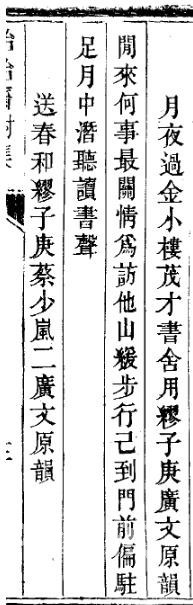 月夜過金小樓茂才書舍用繆子庚廣文原韻
閒來何事最關情爲訪他山緩步行已到門前偏駐
足月中潛聽讀書聲
送春和繆子庚蔡少嵐二廣文原韻